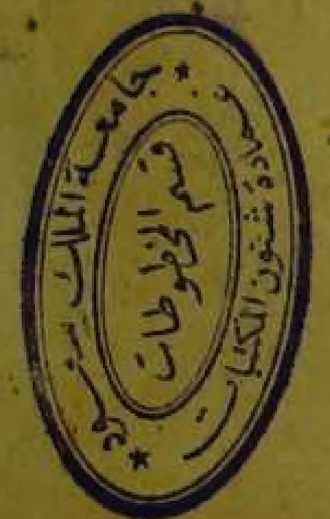 جامعة الملك سعود
عمادة شئون المكتبات
قسم المخطوطات